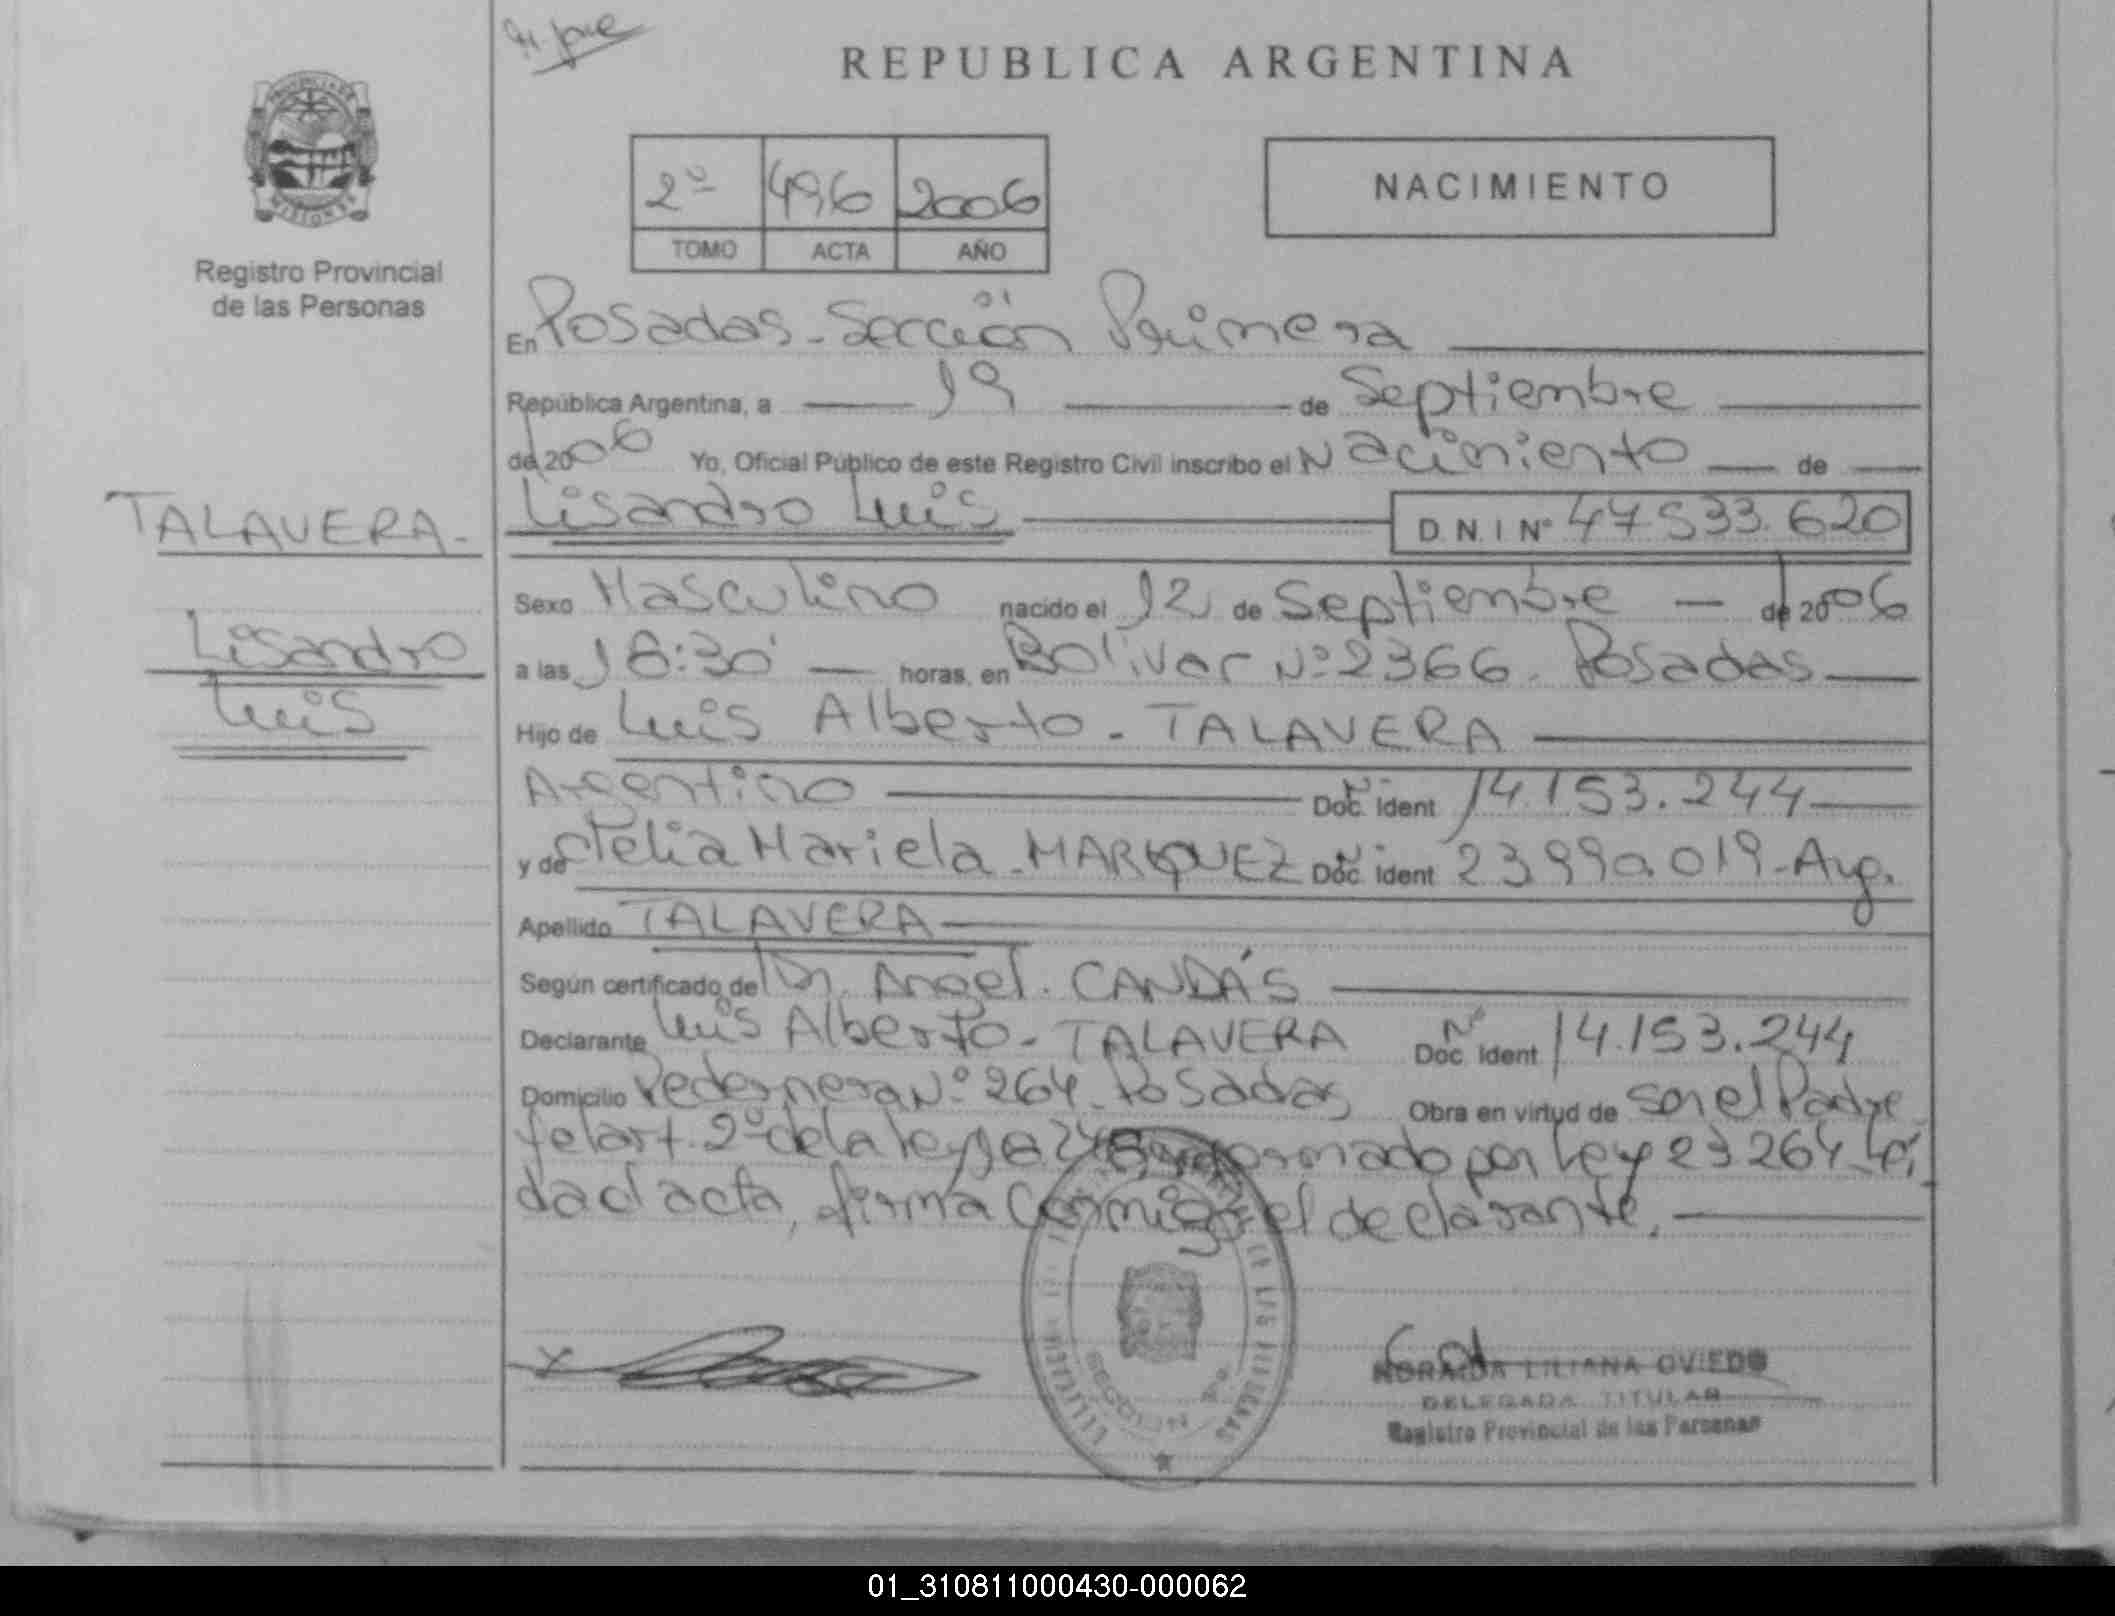 REPUBLICA ARGENTINA
PROVINCIA DE
MISIONES
Registro Provincial
de las Personas
2º 496 2006
TOMO ACTA AÑO
NACIMIENTO
En Posadas - Sección Primera
República Argentina, a 19 de Septiembre
de 2006 Yo, Oficial Público de este Registro Civil inscribo el Nacimiento de
Lisandro Luis D.N.I Nº 47.533.620
TALAVERA.
Lisandro
Luis
Sexo Masculino nacido el 12 de Septiembre - de 2006
a las 18:30 horas, en Bolivar Nº 2366. Posadas
Hijo de Luis Alberto - TALAVERA
Argentino Doc. Ident Nº 14.153.244
y de Clelia Mariela - MARQUEZ Doc. Ident Nº 23.990.019 - Arg.
Apellido TALAVERA
Según certificado de Dr. Angel. CANDÁS
Declarante Luis Alberto - TALAVERA Doc. Ident Nº 14.153.244
Domicilio Pedernera Nº 264 - Posadas Obra en virtud de ser el Padre
y el art. 2º de la ley por Ley 23264. Leí
da el acta, firma Conmigo el declarante.
X
LILIANA OVIEDO
DELEGADA TITULAR
Registro Provincial de las Personas
01_310811000430-000062